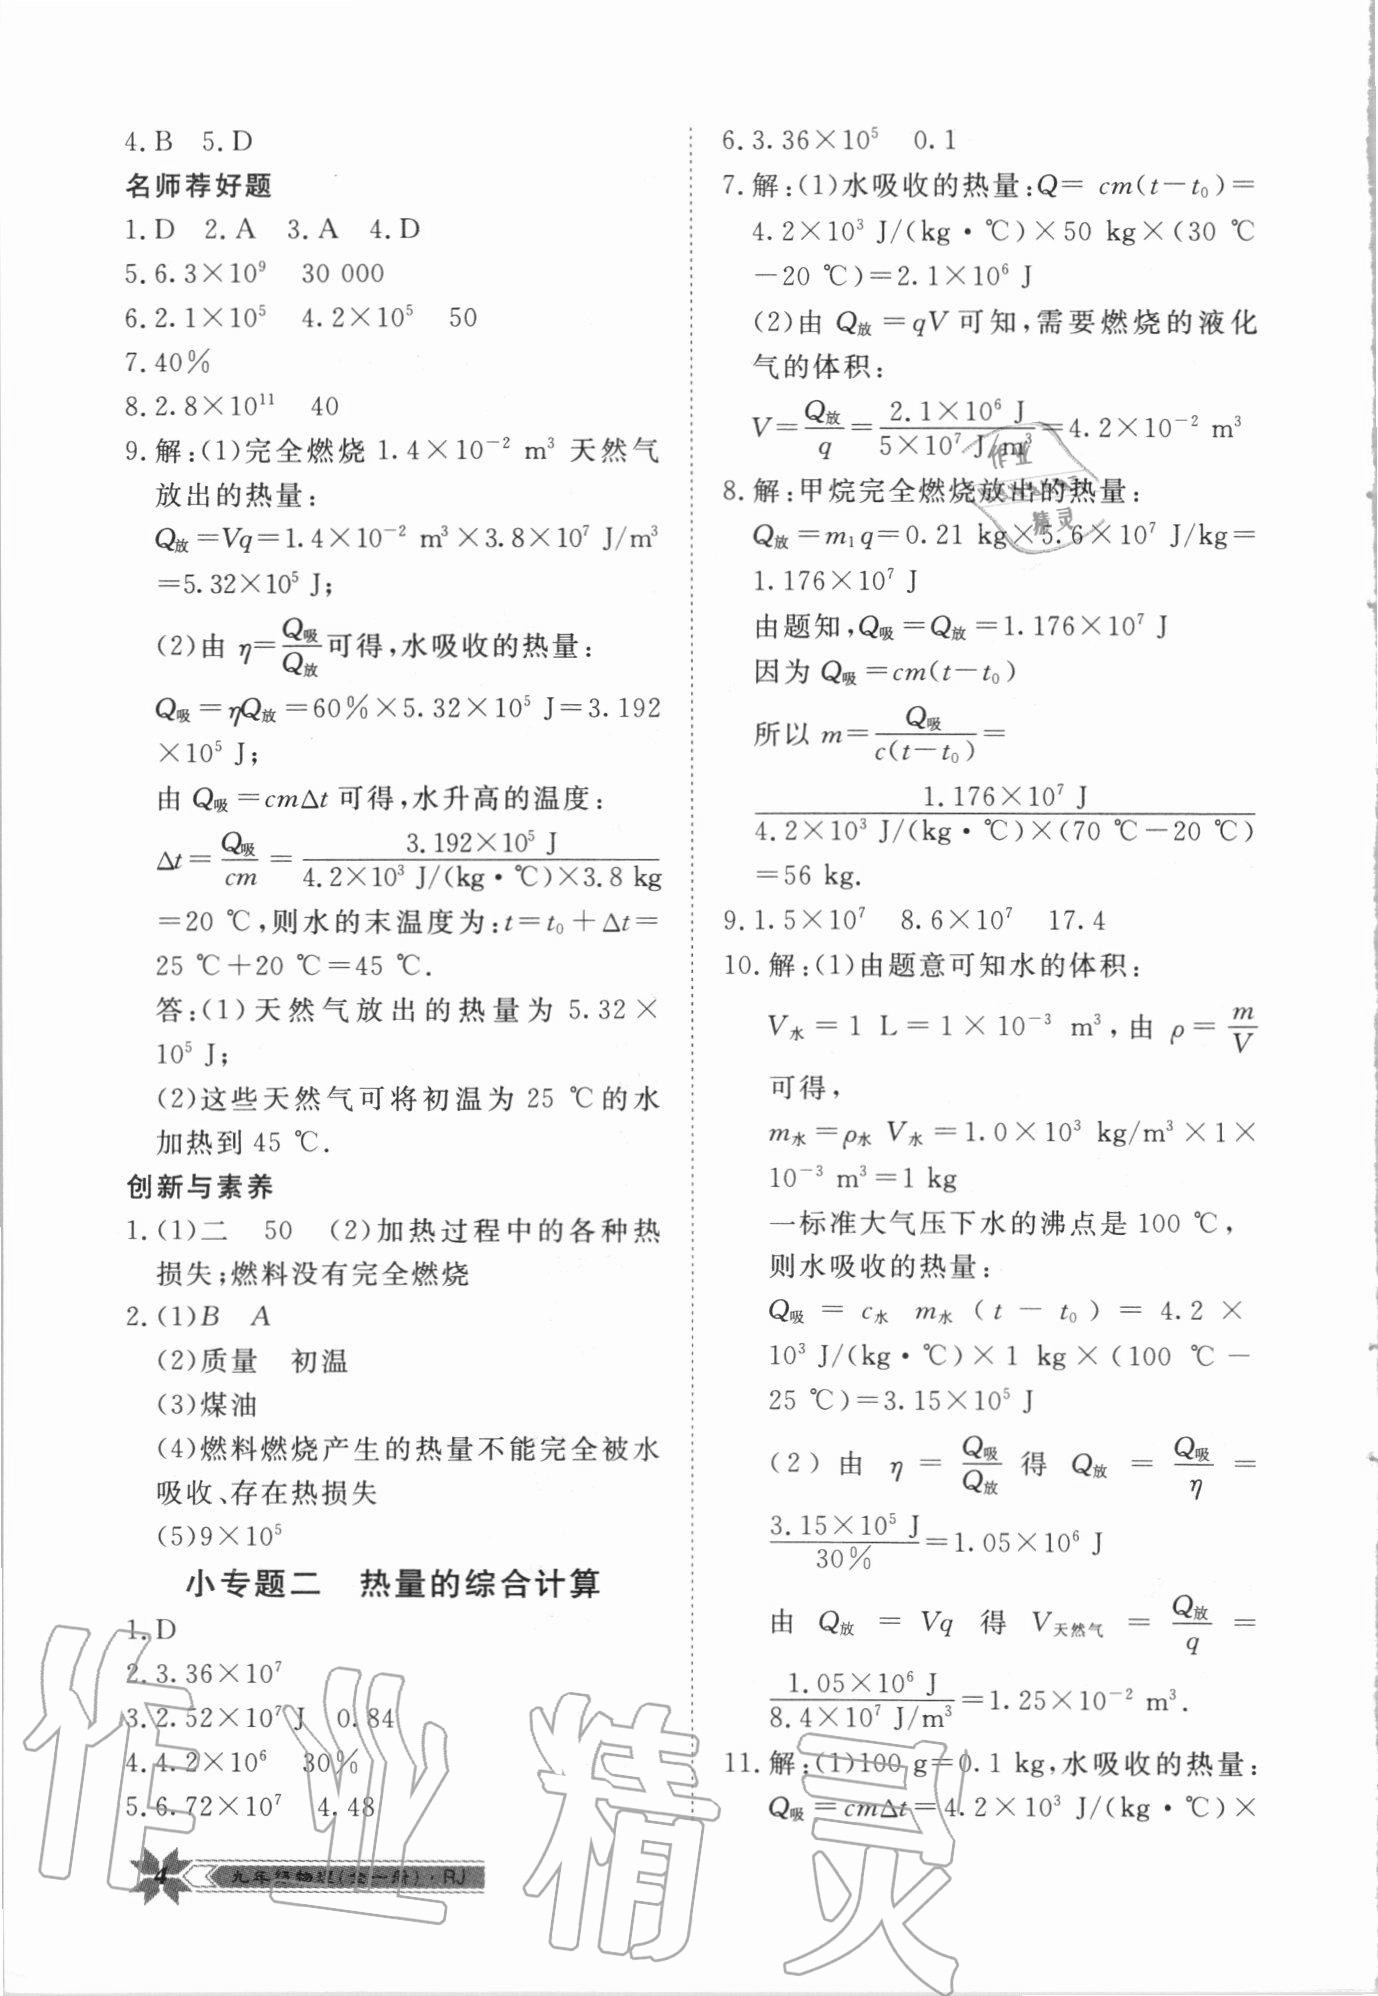 4.B  5.D
名师荐好题
1.D  2.A  3.A  4.D
5.6.3×10⁹  30 000
6.2.1×10⁵  4.2×10⁵  50
7.40%
8.2.8×10¹¹  40
9.解:(1)完全燃烧 1.4×10⁻² m³ 天然气
放出的热量:
Q放=Vq=1.4×10⁻² m³×3.8×10⁷ J/m³
=5.32×10⁵ J;
(2)由 η=Q吸/Q放 可得,水吸收的热量:
Q吸=ηQ放=60%×5.32×10⁵ J=3.192
×10⁵ J;
由 Q吸=cmΔt 可得,水升高的温度:
Δt=Q吸/cm=3.192×10⁵ J/4.2×10³ J/(kg·℃)×3.8 kg
=20 ℃,则水的末温度为:t=t₀+Δt=
25 ℃+20 ℃=45 ℃.
答:(1)天然气放出的热量为 5.32×
10⁵ J;
(2)这些天然气可将初温为 25 ℃的水
加热到 45 ℃.
创新与素养
1.(1)二  50  (2)加热过程中的各种热
损失;燃料没有完全燃烧
2.(1)B  A
(2)质量  初温
(3)煤油
(4)燃料燃烧产生的热量不能完全被水
吸收、存在热损失
(5)9×10⁵
小专题二  热量的综合计算
1.D
2.3.36×10⁷
3.2.52×10⁷ J  0.84
4.4.2×10⁶  30%
5.6.72×10⁷  4.48
4 九年级物理(全一册)·RJ
6.3.36×10⁵  0.1
7.解:(1)水吸收的热量:Q= cm(t-t₀)=
4.2×10³ J/(kg·℃)×50 kg×(30 ℃
-20 ℃)=2.1×10⁶ J
(2)由 Q放=qV 可知,需要燃烧的液化
气的体积:
V=Q放/q=2.1×10⁶ J/5×10⁷ J/m³=4.2×10⁻² m³
8.解:甲烷完全燃烧放出的热量:
Q放=m₁q=0.21 kg×5.6×10⁷ J/kg=
1.176×10⁷ J
由题知,Q吸=Q放=1.176×10⁷ J
因为 Q吸=cm(t-t₀)
所以 m=Q吸/c(t-t₀)=
1.176×10⁷ J/4.2×10³ J/(kg·℃)×(70 ℃-20 ℃)
=56 kg.
9.1.5×10⁷  8.6×10⁷  17.4
10.解:(1)由题意可知水的体积:
V水=1 L=1×10⁻³ m³,由 ρ=m/V
可得,
m水=ρ水 V水=1.0×10³ kg/m³×1×
10⁻³ m³=1 kg
一标准大气压下水的沸点是 100 ℃,
则水吸收的热量:
Q吸 = c水 m水(t-t₀) = 4.2 ×
10³ J/(kg·℃)×1 kg×(100 ℃-
25 ℃)=3.15×10⁵ J
(2)由 η=Q吸/Q放 得 Q放=Q吸/η=
3.15×10⁵ J/30%=1.05×10⁶ J
由 Q放 = Vq 得 V天然气 = Q放/q =
1.05×10⁶ J/8.4×10⁷ J/m³=1.25×10⁻² m³.
11.解:(1)100 g=0.1 kg,水吸收的热量:
Q吸=cmΔt=4.2×10³ J/(kg·℃)×
作业
精灵
作业精灵